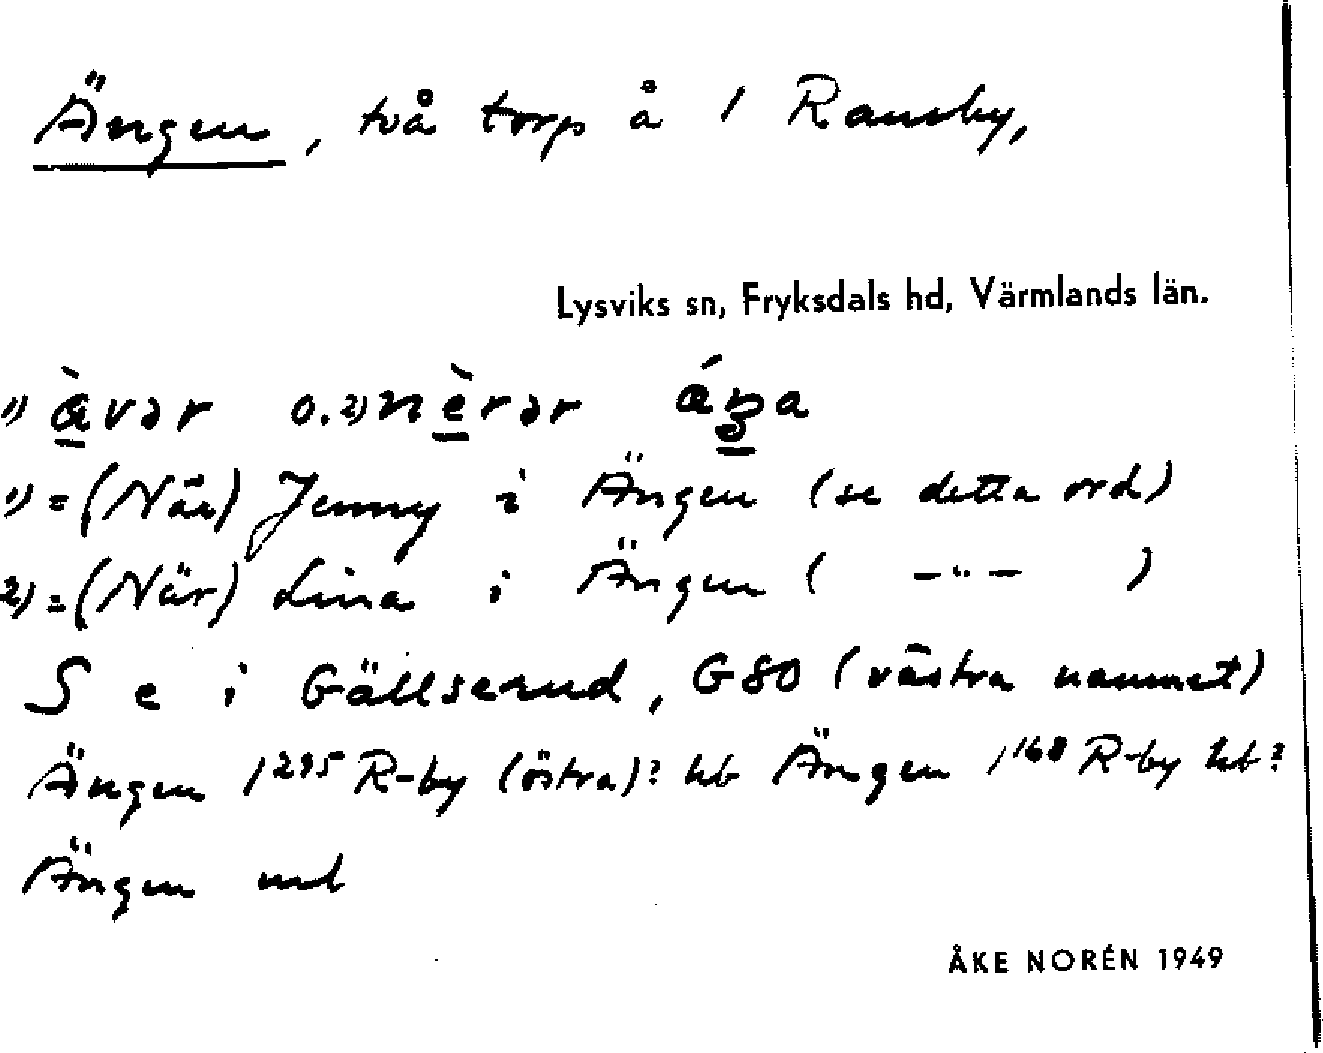 Ängen, två torp å 1 Ransby,
Lysviks sn, Fryksdals hd, Värmlands län.
1) àvər o. 2) nèrər áŋa
1) = (När) Jenny i Ängen (se detta ord)
2) = (När) Lina i Ängen ( —"— )
S e i Gällserud, GSO (västra namnet)
Ängen 1²⁹⁵ R-by (östra)? hb Ängen 1¹⁶⁸ R-by hb?
Ängen
ÅKE NORÉN 1949